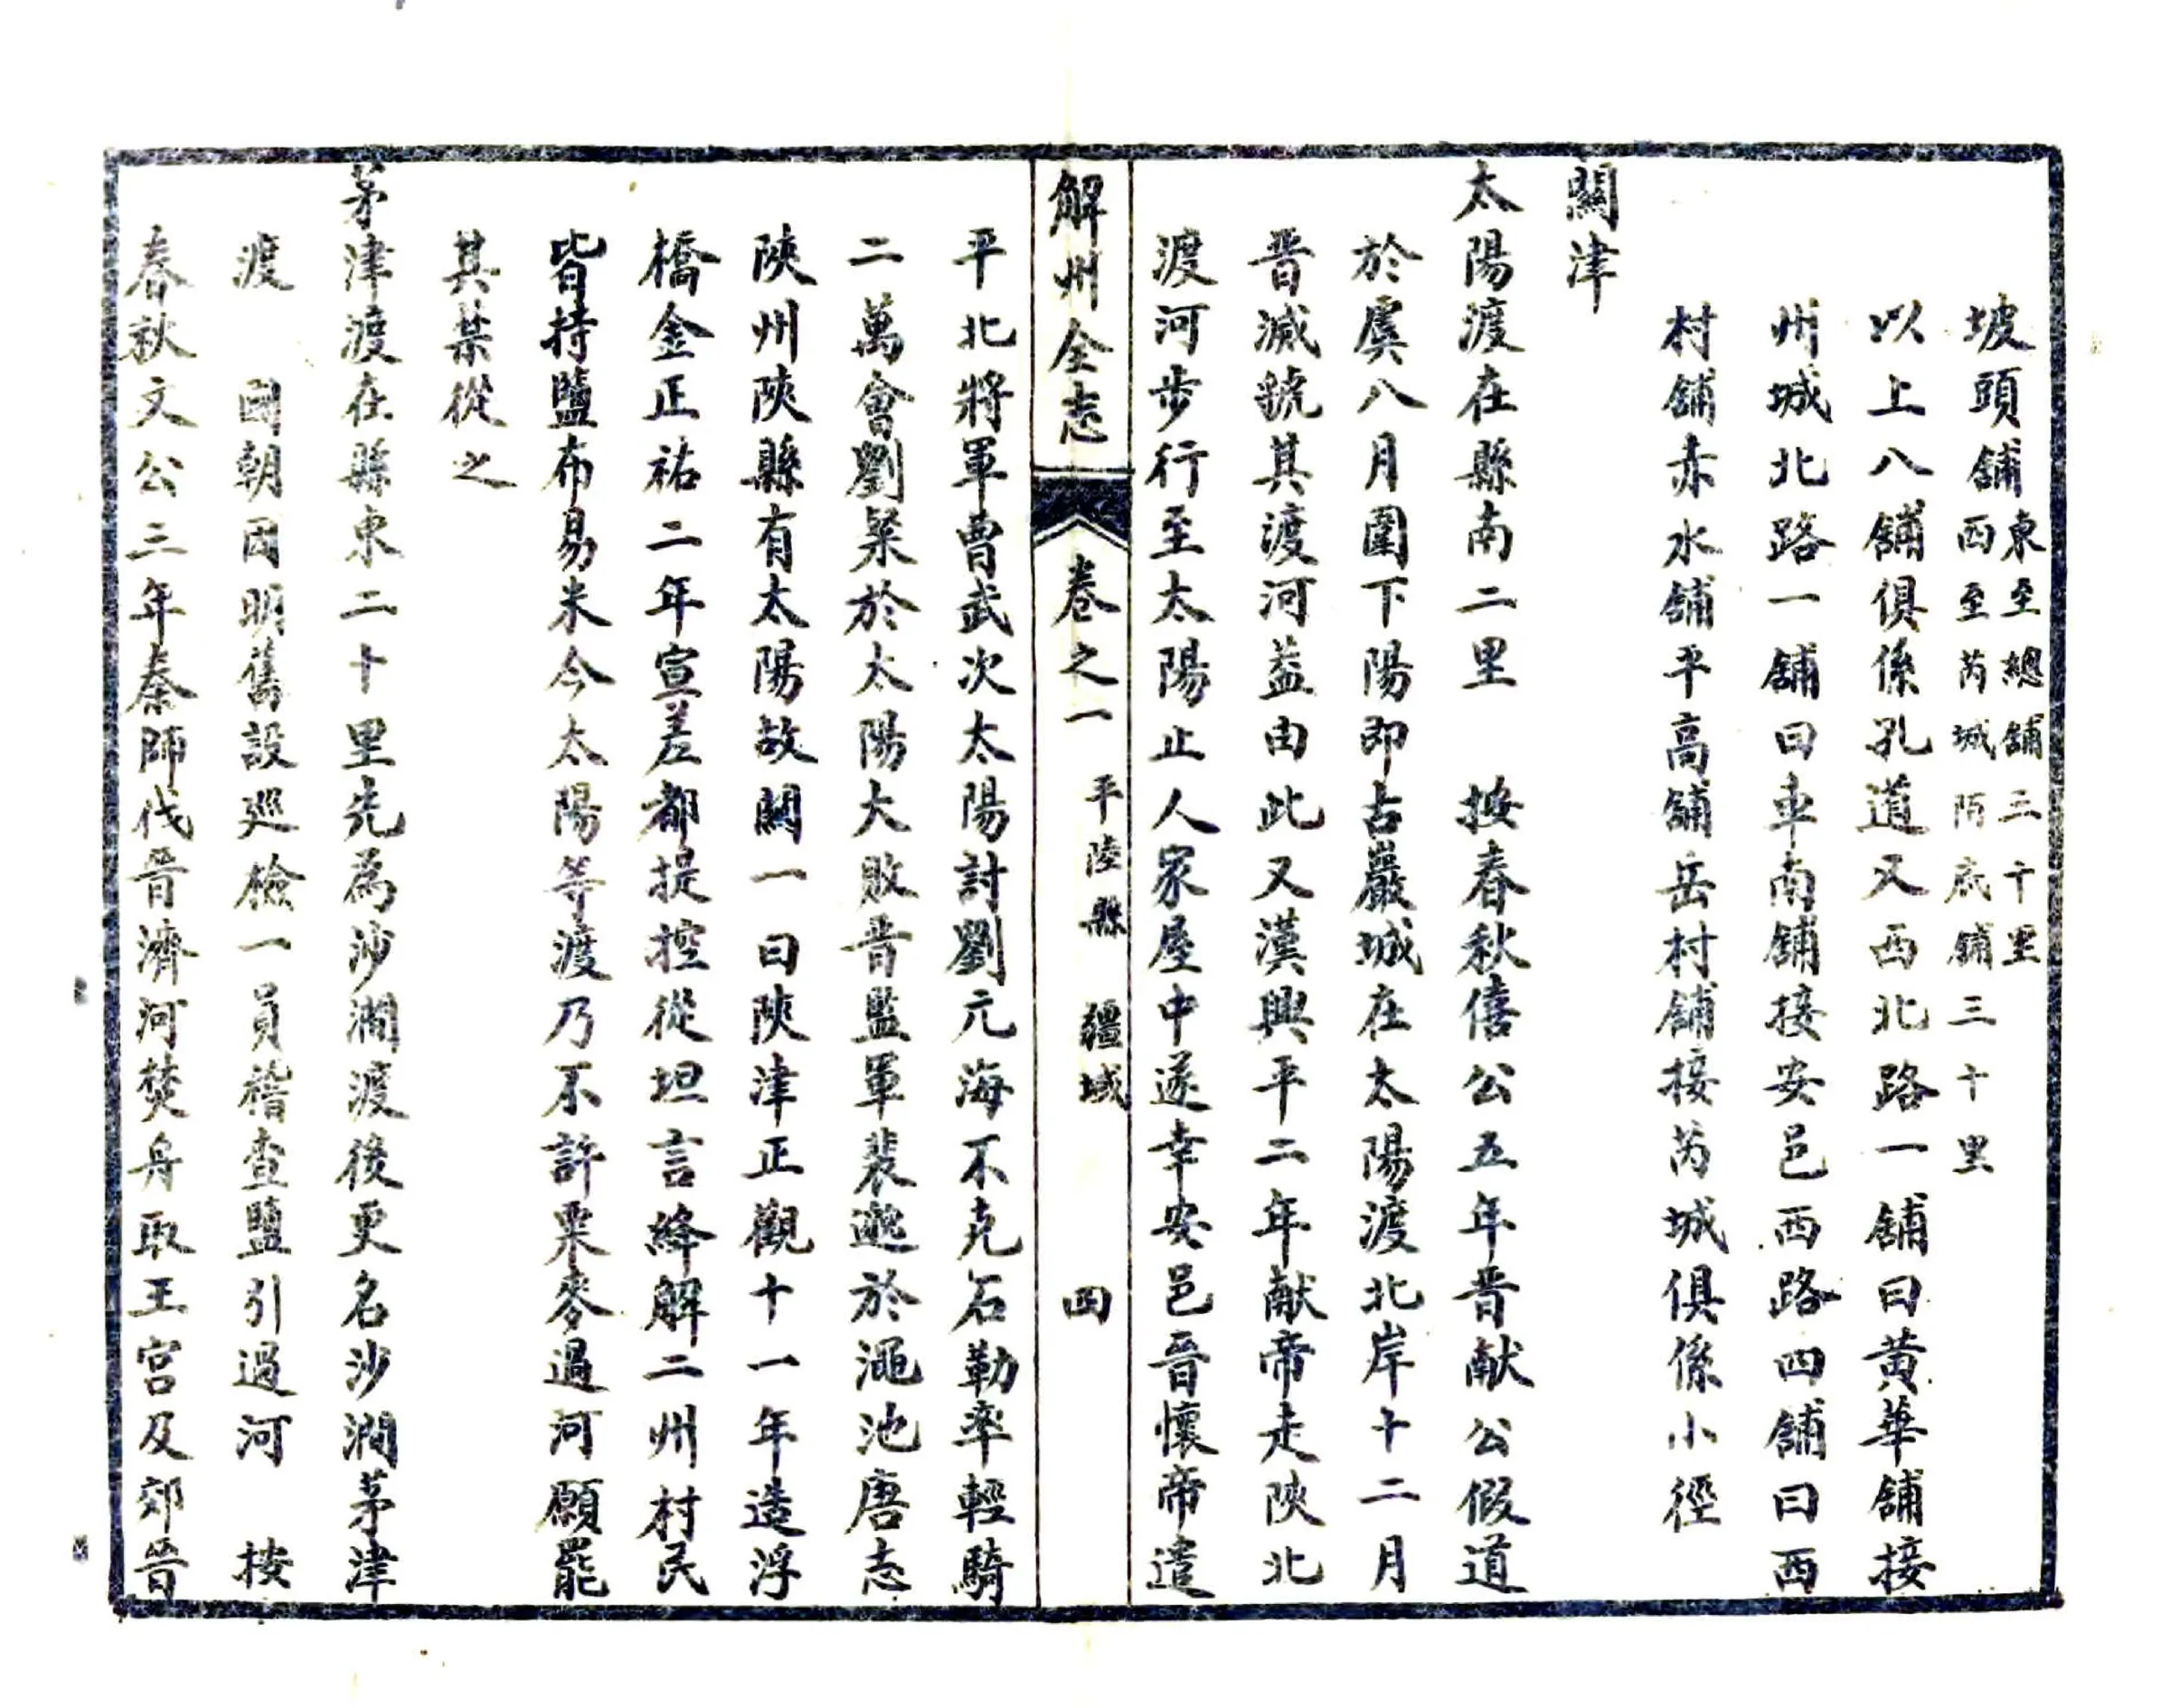 坡頭舖東至總舖三十里西至芮城陌底舖三十里
以上八舖俱係孔道又西北路一舖曰黃華舖接
州城北路一舖曰車南舖接安邑西路四舖曰西
村舖赤水舖平高舖岳村舖接芮城俱係小徑
關津
太陽渡在縣南二里 按春秋僖公五年晋献公假道
於虞八月圍下陽即古巖城在太陽渡北岸十二月
晋滅虢其渡河益由此又漢興平二年献帝走陝北
渡河步行至太陽止人家屋中遂幸安邑晉懷帝遣
解州全志 卷之一 平陸縣 疆域 四
平北將軍曹武次太陽討劉元海不克石勒率輕騎
二萬會劉粲於太陽大敗晋監軍裴邈於澠池唐志
陝州陝縣有太陽故關一曰陝津正觀十一年造浮
橋金正祐二年宣差都提控從坦言絳解二州村民
皆持鹽布易米今太陽等渡乃不許粟麥過河願罷
其禁從之
茅津渡在縣東二十里先為沙澗渡後更名沙澗茅津
渡 國朝因明舊設巡檢一員稽查鹽引過河 按
春秋文公三年秦師伐晋濟河焚舟取王宫及郊晋